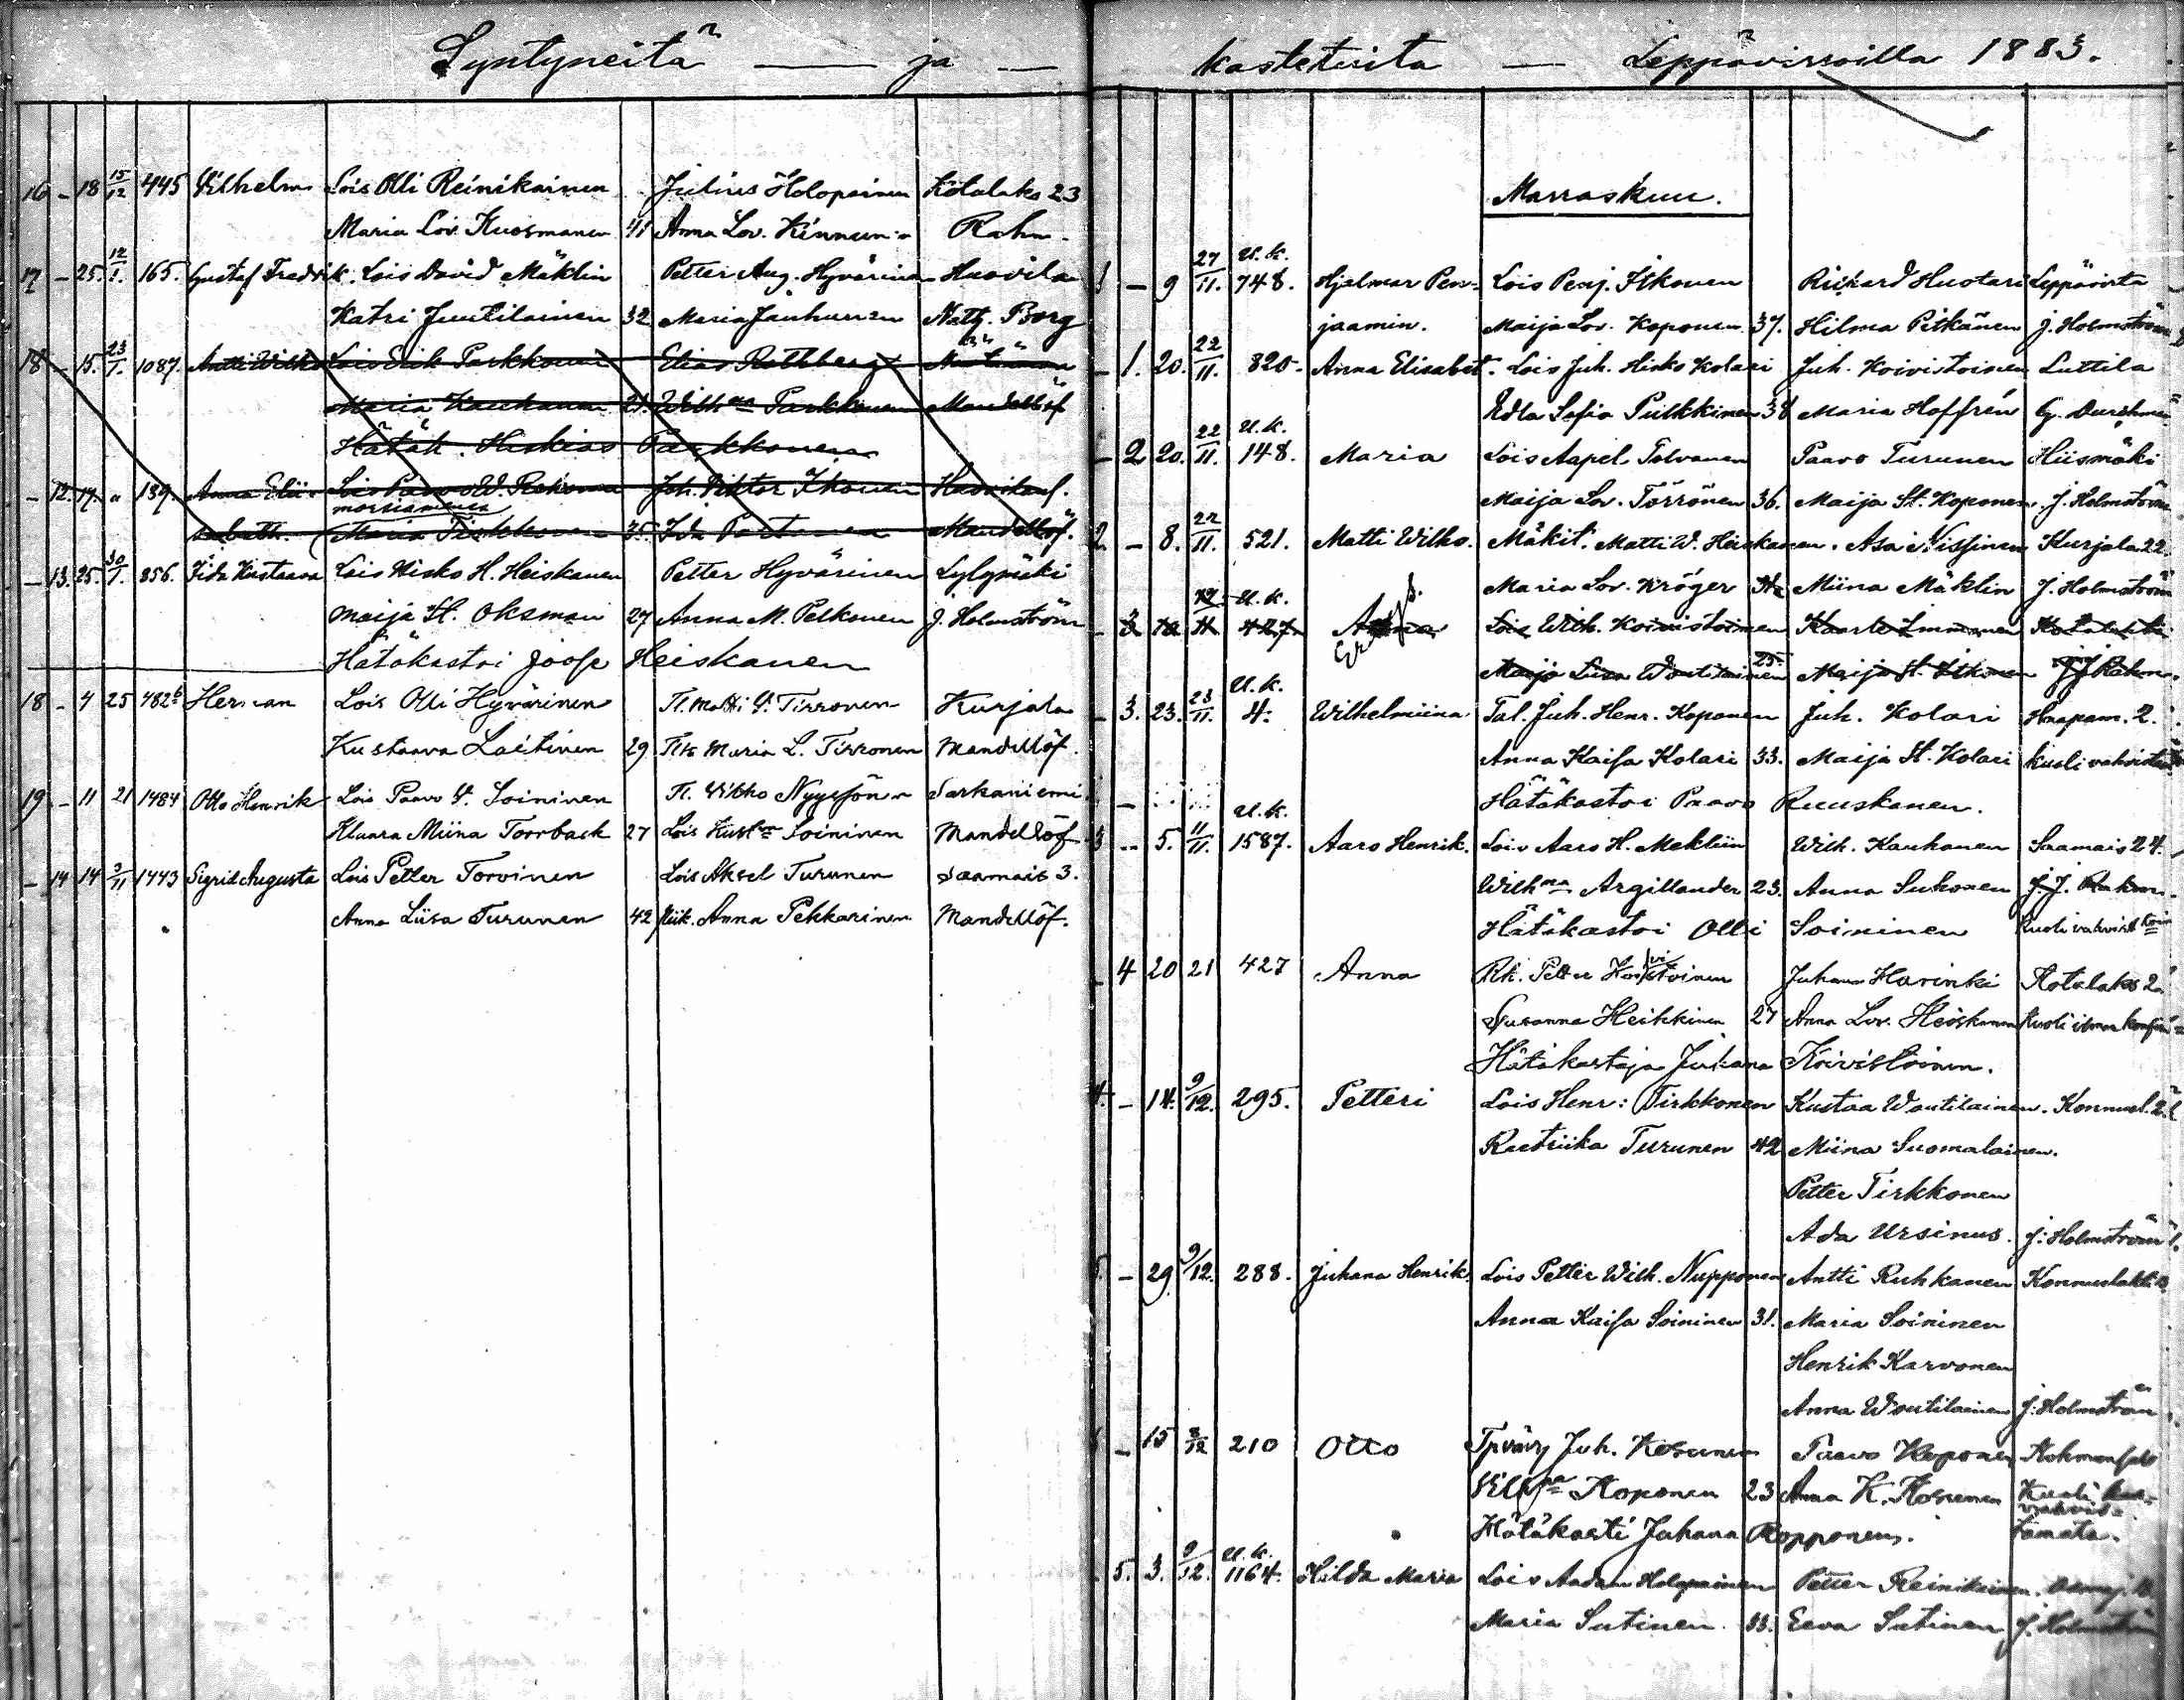 Syntyneitä — ja —
16 - 18 15/12 445 Vilhelm Lois Olli Reinikainen Julius Holopainen Kotalaks 23
Maria Lov. Kuosmanen 41 Anna Lov. Kinnunen Rahm.
17 - 25. 12/1. 165. Gustaf Fredrik. Lois David Mäklin Petter Aug. Hyvärinen Huovila
Katri Juutilainen 32 Maria Jauhunen Nath. Borg
18 - 15. 23/1. 1087. Antti Wilho Lois Erik Parkkonen Elias Rothberg
Maria Kauhanen 21. Wilhna Parkkonen Mandellöf
Hätäk. Hiskias Parkkonen
- 12. 17. " 139. Anna Elii- Lois Paavo W. Joh. Viktor Ikonen
morsiamensa
sabeth. Maria Tirkkonen 35. Ida Partanen Mandellöf.
- 13. 25. 30/1. 856. Fida Kustaava Lois Hisko H. Heiskanen Petter Hyvärinen Lylymäki
Maija St. Oksman 27 Anna M. Pelkonen J. Holmström
Hätäkastoi Joose Heiskanen
18 - 4 25 482b Herman Lois Olli Hyvärinen Tl. Matti V. Tirronen Kurjala
Kustaava Laitinen 29 Tltr Maria L. Tirronen Mandellöf.
19 - 11 21 1484 Otto Henrik Lois Paavo V. Soininen Tl. Vilho Nyyssönen Sarkaniemi
Klaara Miina Torrback 27 Lois Kustna Soininen Mandellöf
- 14 14 3/11 1443 Sigrid Augusta Lois Petter Torvinen Lois Aksel Turunen Saamais 3.
Anna Liisa Turunen 42 Anna Pekkarinen Mandellöf.
kastetuita — Leppävirroilla 1883.
Marraskuu.
1 - 9 27/11. U.K. 748. Hjalmar Pen- Lois Penj. Itkonen Rickard Huotari Leppävirta
jaamin. Maija Lov. Koponen 37. Hilma Pitkänen J. Holmström
- 1. 20. 22/11. 820. Anna Elisabet. Lois Juh. Hisko Kolari Juh. Koivistoinen Luttila
Edla Sofia Pulkkinen 38 Maria Hoffrén G. Durchman
- 2 20. 22/11. U.K. 148. Maria Lois Aapel Tolvanen Paavo Turunen Hiismäki
Maija Lov. Törrönen 36. Maija St. Koponen. J. Holmström
2 - 8. 22/11. 521. Matti Wilho. Mäkit. Matti W. Heiskanen. Asa Nissinen Kurjala 22.
Maria Lov. Kröger Miina Mäklin J. Holmström
- 3 11. U.K. 427. Anna Lois Wilh. Koivistoinen Kaarle Immonen Kotalahti
Maija Liisa Woutilainen 25. Maija St. Itkonen J.J. Rahm.
- 3. 23. 23/11. U.K. 4. Wilhelmiina Tal. Juh. Henr. Koponen Juh. Kolari Haapam. 2.
Anna Kaisa Kolari 33. Maija St. Kolari kuoli
Hätäkastoi Paavo Ruuskanen.
3 - 5. 11/11. U.K. 1587. Aaro Henrik. Lois Aaro H. Mekliin Wilh. Kauhanen Saamais 24.
Wilhna Argillander 23. Anna Suhonen J.J. Rahm.
Hätäkastoi Olli Soininen Kuoli
- 4 20 21 427 Anna Rk. Petter Koivistoinen Juhana Harinki Kotalaks 2
Susanna Heikkinen 27 Anna Lov. Heiskanen Kuoli ilman
Hätäkastaja Juhana Koivistoinen.
4. - 14. 9/12. 295. Petteri Lois Henr: Tirkkonen Kustaa Woutilainen. Konnusl. 2.
Reetriika Turunen 42 Miina Suomalainen.
Petter Tirkkonen
Ada Ursinus. J. Holmström
5. - 29. 9/12. 288. Juhana Henrik. Lois Petter Wilh. Nupponen Antti Ruhkanen Konnuslahti
Anna Kaisa Soininen 31. Maria Soininen
Henrik Karvonen
Anna Woutilainen J. Holmström
- 15 2/12 210 Otto Juh. Kosunen Paavo Koponen
Vilhna Koponen 23 Anna K. Kosunen Kuoli
Hätäkasti Juhana Ropponen.
5. 3. 9/12. U.K. 1164. Hilda Maria Lois Aadam Holopainen Petter Reinikainen.
Maria Sutinen. 33. Eeva Sutinen J. Holmström